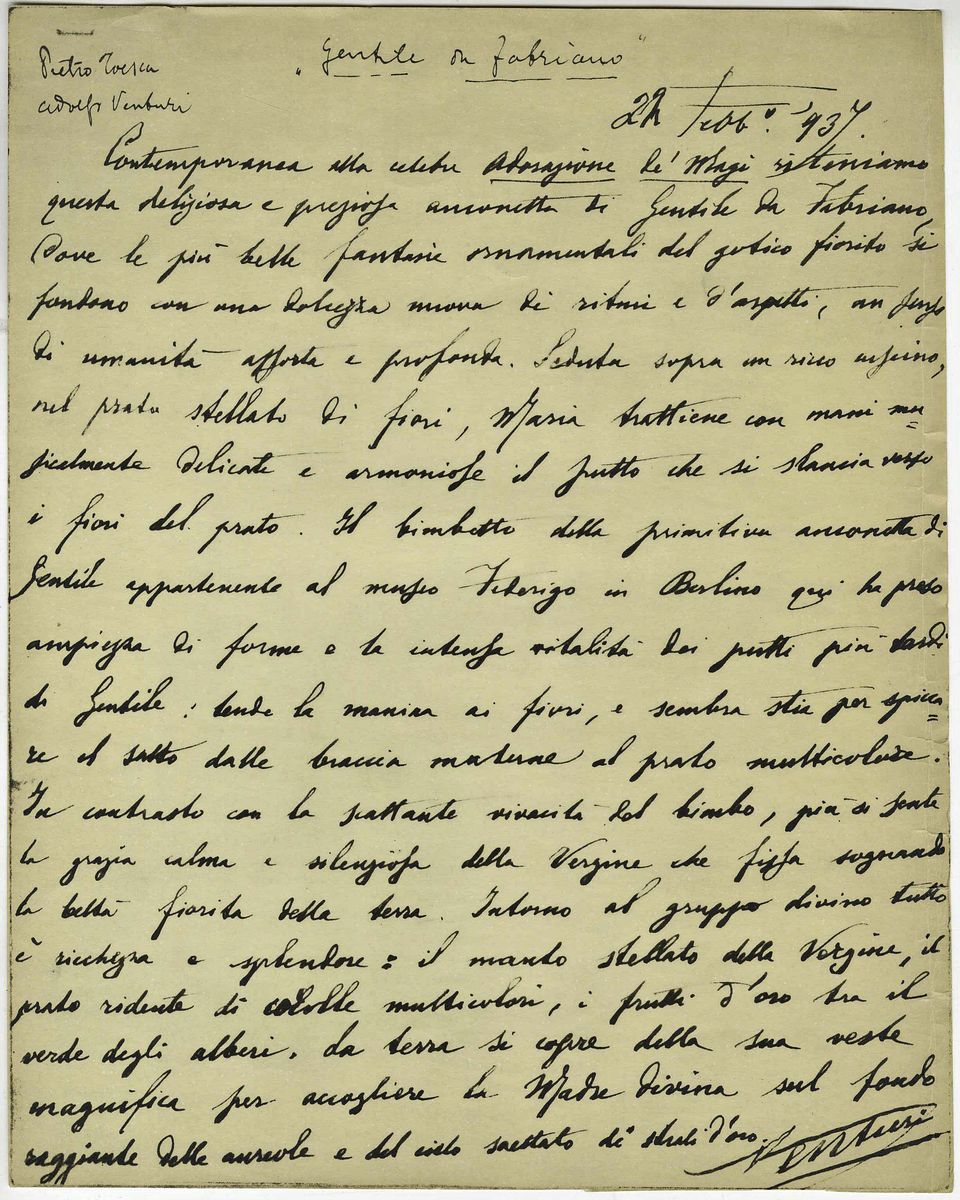 Pietro Toesca
Adolfo Venturi
„Gentile da Fabriano"
22 Febb°. '937.
Contemporanea alla celebre Adorazione de' Magi riteniamo
questa deliziosa e preziosa anconetta di Gentile da Fabriano,
dove le più belle fantasie ornamentali del gotico fiorito si
fondono con una dolcezza nuova di ritmi e d'aspetti, un senso
di umanità assorta e profonda. Seduta sopra un ricco cuscino,
nel prato stellato di fiori, Maria trattiene con mani mu=
sicalmente delicate e armoniose il putto che si slancia verso
i fiori del prato. Il bimbetto della primitiva anconetta di
Gentile appartenente al museo Federigo in Berlino qui ha preso
ampiezza di forme e la intensa vitalità dei putti più tardi
di Gentile: tende la manina ai fiori, e sembra stia per spicca=
re il salto dalle braccia materne al prato multicolore.
In contrasto con la scattante vivacità del bimbo, più si sente
la grazia calma e silenziosa della Vergine che fissa sognando
la beltà fiorita della terra. Intorno al gruppo divino tutto
è ricchezza e splendore: il manto stellato della Vergine, il
prato ridente di corolle multicolori, i frutti d'oro tra il
verde degli alberi. La terra si copre della sua veste
magnifica per accogliere la Madre divina sul fondo
raggiante delle aureole e del cielo saettato di strali d'oro.
Venturi